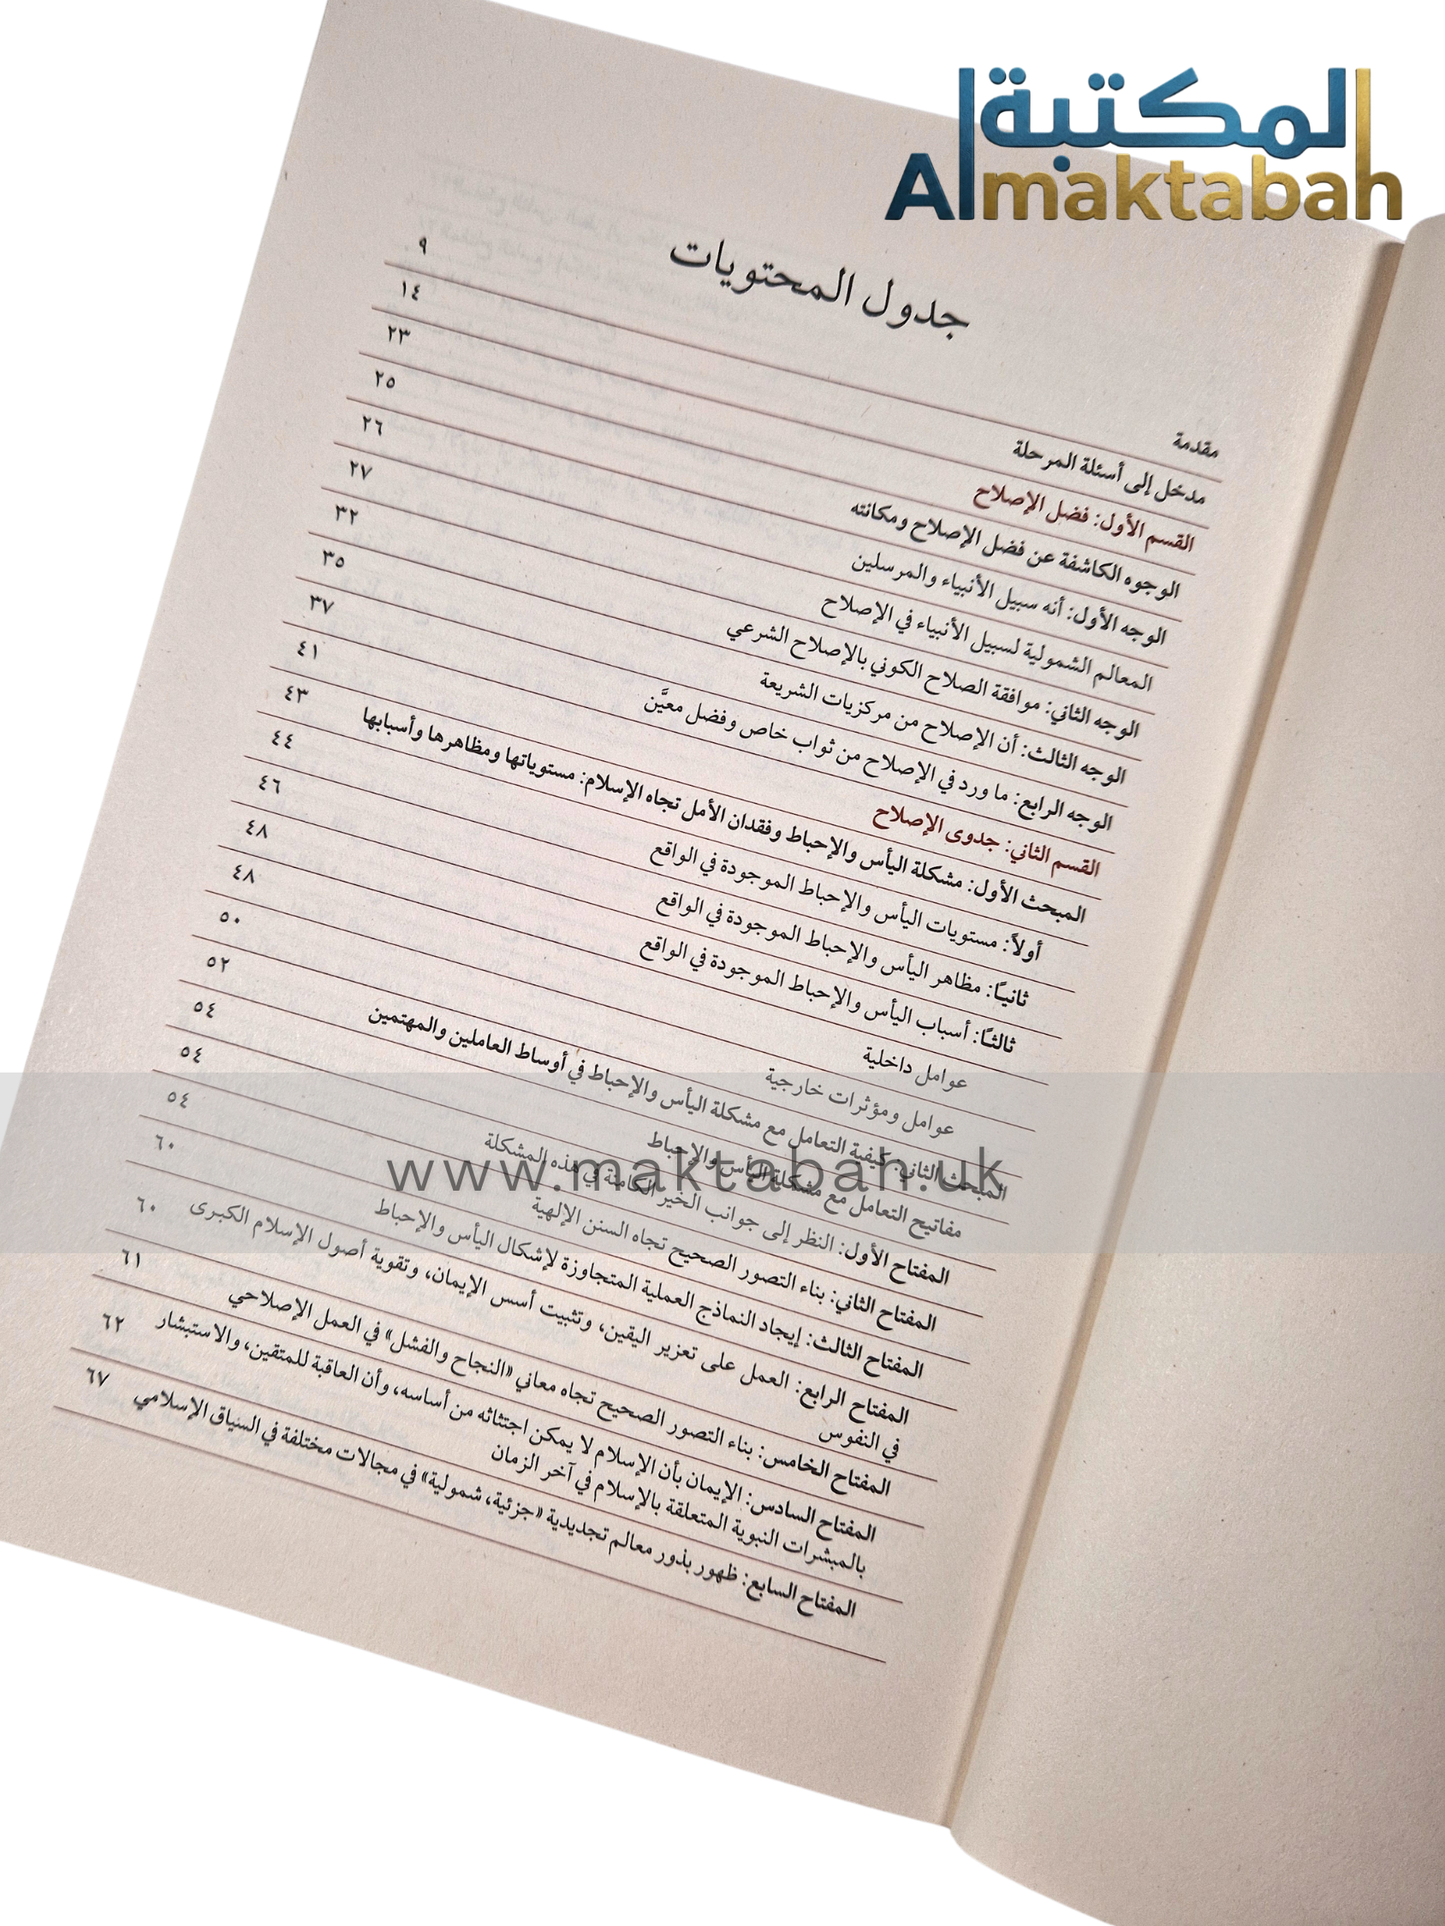 المكتبة
Almaktabah
جدول المحتويات
مقدمة ٩
مدخل إلى أسئلة المرحلة ١٤
القسم الأول: فضل الإصلاح ٢٣
الوجوه الكاشفة عن فضل الإصلاح ومكانته ٢٥
الوجه الأول: أنه سبيل الأنبياء والمرسلين ٢٦
المعالم الشمولية لسبيل الأنبياء في الإصلاح ٢٧
الوجه الثاني: موافقة الصلاح الكوني بالإصلاح الشرعي ٣٢
الوجه الثالث: أن الإصلاح من مركزيات الشريعة ٣٥
الوجه الرابع: ما ورد في الإصلاح من ثواب خاص وفضل معيَّن ٣٧
القسم الثاني: جدوى الإصلاح ٤١
المبحث الأول: مشكلة اليأس والإحباط وفقدان الأمل تجاه الإسلام: مستوياتها ومظاهرها وأسبابها ٤٣
أولاً: مستويات اليأس والإحباط الموجودة في الواقع ٤٤
ثانيـًا: مظاهر اليأس والإحباط الموجودة في الواقع ٤٦
ثالثـًا: أسباب اليأس والإحباط الموجودة في الواقع ٤٨
عوامل داخلية ٤٨
عوامل ومؤثرات خارجية ٥٠
المبحث الثاني: كيفية التعامل مع مشكلة اليأس والإحباط في أوساط العاملين والمهتمين ٥٢
مفاتيح التعامل مع مشكلة اليأس والإحباط ٥٤
المفتاح الأول: النظر إلى جوانب الخير الكامنة في هذه المشكلة ٥٤
المفتاح الثاني: بناء التصور الصحيح تجاه السنن الإلهية ٥٤
المفتاح الثالث: إيجاد النماذج العملية المتجاوزة لإشكال اليأس والإحباط ٦٠
المفتاح الرابع: العمل على تعزير اليقين، وتثبيت أسس الإيمان، وتقوية أصول الإسلام الكبرى ٦٠
في النفوس
المفتاح الخامس: بناء التصور الصحيح تجاه معاني «النجاح والفشل» في العمل الإصلاحي ٦١
المفتاح السادس: الإيمان بأن الإسلام لا يمكن اجتثاثه من أساسه، وأن العاقبة للمتقين، والاستبشار ٦٢
بالمبشرات النبوية المتعلقة بالإسلام في آخر الزمان
المفتاح السابع: ظهور بذور معالم تجديدية «جزئية، شمولية» في مجالات مختلفة في السياق الإسلامي ٦٧
www.maktabah.uk